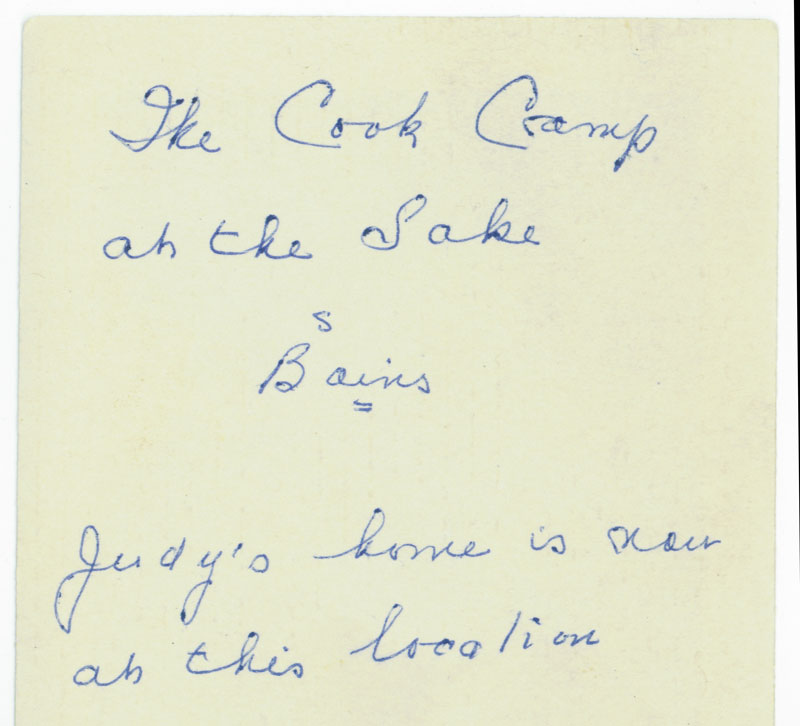 The Cook Camp
at the Lake
s
Bains
Judy's home is now
at this location